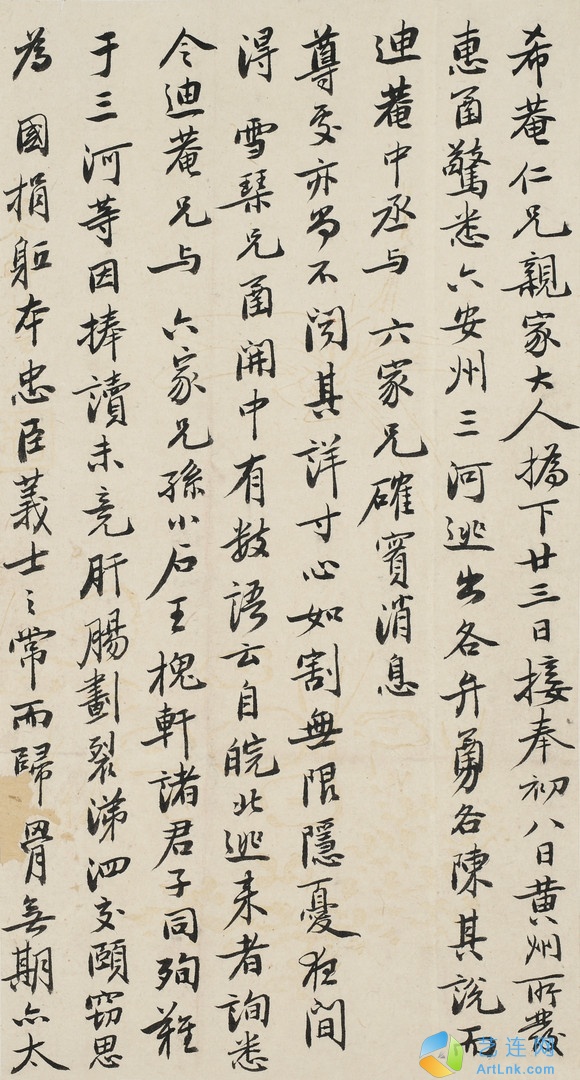 希菴仁兄親家大人撝下廿三日接奉初八日黄州所發
惠函驚悉六安州三河逃出各弁勇各陳其說而
迪菴中丞与 六家兄確實消息
尊處亦尚不閲其詳寸心如割無限隱憂夜間
得 雪琹兄函開中有数語云自皖北逃来者詢悉
令迪菴兄与 六家兄孫小石王槐軒諸君子同殉難
于三河等因捧讀未竟肝腸劃裂涕泗交頤竊思
為 國捐軀本忠臣義士之常而歸骨無期亦太
艺连网
ArtLnk.com